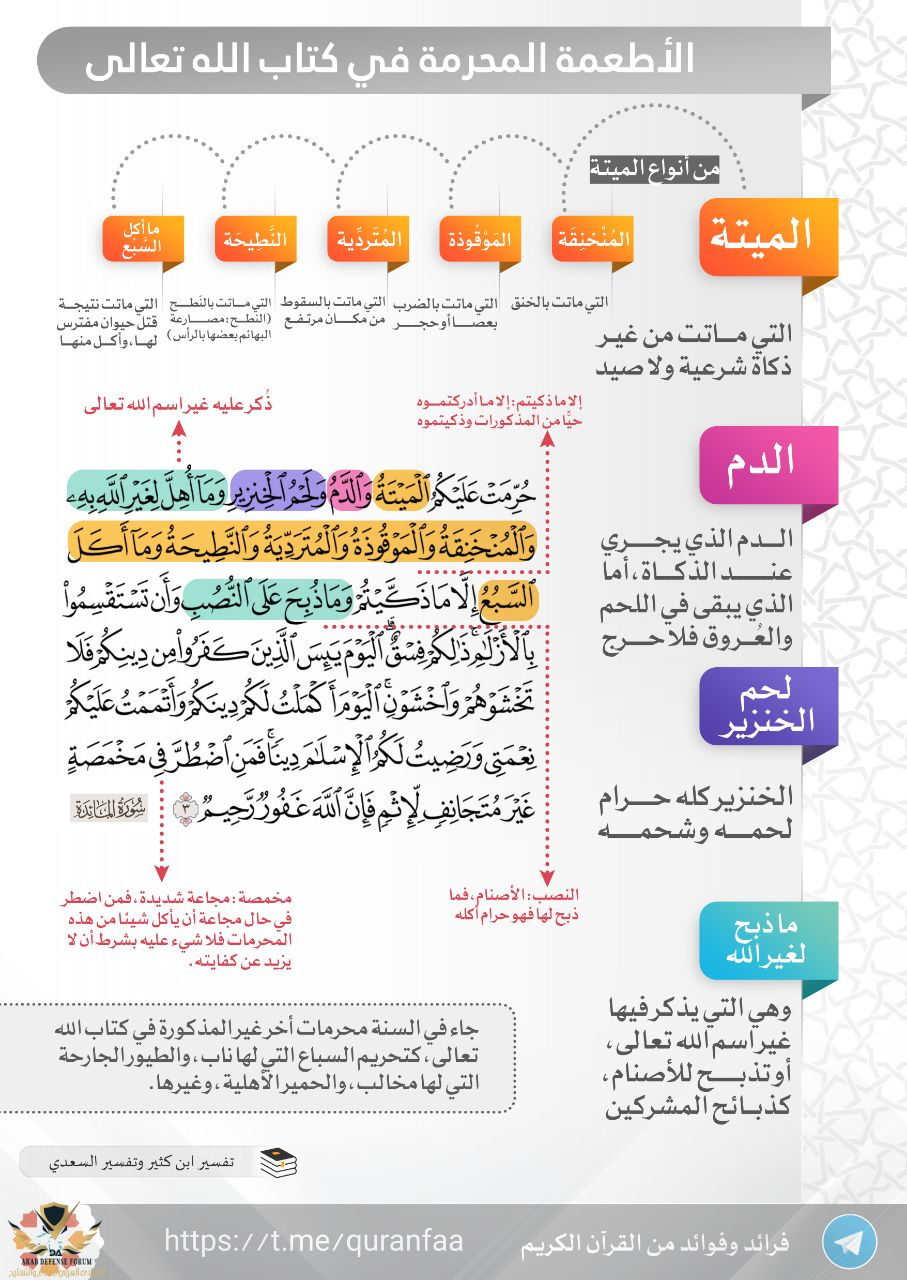 الأطعمة المحرمة في كتاب الله تعالى
من أنواع الميتة
الميتة
التي مـاتت من غير
ذكاة شرعية ولا صيد
المُنْخنِقَة
التي ماتت بالخنق
المَوْقُوذة
التي ماتت بالضرب
بعصا أو حجر
المُتَردِّية
التي ماتت بالسقوط
من مكان مرتفع
النَّطِيحَة
التي ماتت بالنَّطح
(النَّطح: مصارعة
البهائم بعضها بالرأس)
ما أكل
السَّبُع
التي ماتت نتيجة
قتل حيوان مفترس
لها، وأكل منها
الدم
الدم الذي يجري
عند الذكاة، أما
الذي يبقى في اللحم
والعُروق فلا حرج
لحم
الخنزير
الخنزير كله حرام
لحمه وشحمه
ما ذبح
لغير الله
وهي التي يذكر فيها
غير اسم الله تعالى،
أو تذبح للأصنام،
كذبائح المشركين
إلا ما ذكيتم: إلا ما أدركتموه
حيًّا من المذكورات وذكيتموه
ذُكر عليه غير اسم الله تعالى
حُرِّمَتْ عَلَيْكُمُ ٱلْمَيْتَةُ وَٱلدَّمُ وَلَحْمُ ٱلْخِنزِيرِ وَمَآ أُهِلَّ لِغَيْرِ ٱللَّهِ بِهِۦ
وَٱلْمُنْخَنِقَةُ وَٱلْمَوْقُوذَةُ وَٱلْمُتَرَدِّيَةُ وَٱلنَّطِيحَةُ وَمَآ أَكَلَ
ٱلسَّبُعُ إِلَّا مَا ذَكَّيْتُمْ وَمَا ذُبِحَ عَلَى ٱلنُّصُبِ وَأَن تَسْتَقْسِمُوا۟
بِٱلْأَزْلَٰمِ ۚ ذَٰلِكُمْ فِسْقٌ ۗ ٱلْيَوْمَ يَئِسَ ٱلَّذِينَ كَفَرُوا۟ مِن دِينِكُمْ فَلَا
تَخْشَوْهُمْ وَٱخْشَوْنِ ۚ ٱلْيَوْمَ أَكْمَلْتُ لَكُمْ دِينَكُمْ وَأَتْمَمْتُ عَلَيْكُمْ
نِعْمَتِى وَرَضِيتُ لَكُمُ ٱلْإِسْلَٰمَ دِينًا ۚ فَمَنِ ٱضْطُرَّ فِى مَخْمَصَةٍ
غَيْرَ مُتَجَانِفٍ لِّإِثْمٍ ۙ فَإِنَّ ٱللَّهَ غَفُورٌ رَّحِيمٌ ٣ سُورَةُ المَائِدَة
النصب: الأصنام، فما
ذبح لها فهو حرام أكله
مخمصة: مجاعة شديدة، فمن اضطر
في حال مجاعة أن يأكل شيئا من هذه
المحرمات فلا شيء عليه بشرط أن لا
يزيد عن كفايته.
جاء في السنة محرمات أخر غير المذكورة في كتاب الله
تعالى، كتحريم السباع التي لها ناب، والطيور الجارحة
التي لها مخالب، والحمير الأهلية، وغيرها.
تفسير ابن كثير وتفسير السعدي
فرائد وفوائد من القرآن الكريم
https://t.me/quranfaa
ARAB DEFENSE FORUM